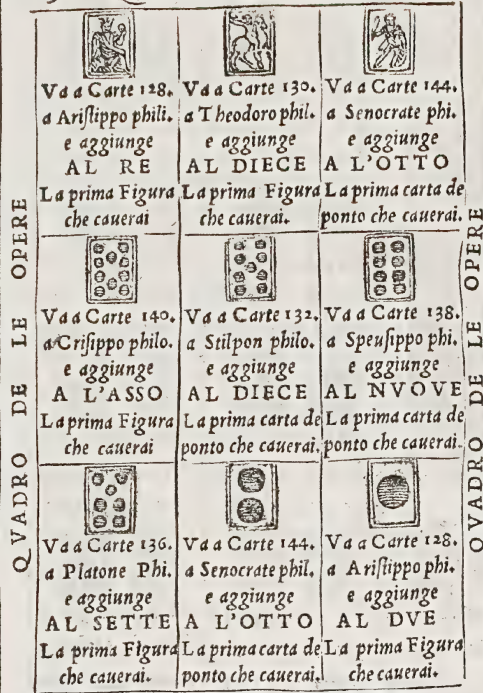 QVADRO DE LE OPERE
Va a Carte 128.
a Ariſtippo phili.
e aggiunge
AL RE
La prima Figura
che cauerai
Va a Carte 130.
a Theodoro phil.
e aggiunge
AL DIECE
La prima Figura
che cauerai.
Va a Carte 144.
a Senocrate phi.
e aggiunge
A L'OTTO
La prima carta de
ponto che cauerai.
Va a Carte 140.
a Criſippo philo.
e aggiunge
A L'ASSO
La prima Figura
che cauerai
Va a Carte 132.
a Stilpon philo.
e aggiunge
AL DIECE
La prima carta de
ponto che cauerai.
Va a Carte 138.
a Speuſippo phi.
e aggiunge
AL NVOVE
La prima carta de
ponto che cauerai.
Va a Carte 136.
a Platone Phi.
e aggiunge
AL SETTE
La prima Figura
che cauerai.
Va a Carte 144.
a Senocrate phil.
e aggiunge
A L'OTTO
La prima carta de
ponto che cauerai.
Va a Carte 128.
a Ariſtippo phi.
e aggiunge
AL DVE
La prima Figura
che cauerai.
QVADRO DE LE OPERE